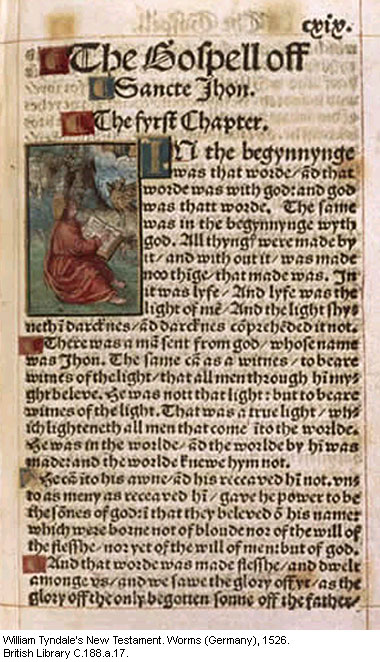 cxix.
The Gospell off
Sancte Jhon.
The fyrst Chapter.
IN the begynnynge
was that worde/ ād that
worde was with god: and god
was thatt worde. The same
was in the begynnynge wyth
god. All thyngꝭ were made by
it/ and with out it/ was made
noo thīge/ that made was. In
it was lyfe/ And lyfe was the
light of mē/ And the light shy-
neth ī darcknes/ ād darcknes cōprehēded it not.
There was a mā sent from god/ whose name
was Jhon. The same cā as a witnes/ to beare
witnes of the light/ that all men through hī my-
ght beleve. He was nott that light: but to beare
witnes of the light. That was a true light/ wh-
ich lighteneth all men that come īto the worlde.
He was in the worlde/ ād the worlde by hī was
made: and the worlde knewe hym not.
He cā īto his awne/ ād his receaved hī not. vn-
to as meny as receaved hī/ gave he power to be
the sōnes of god: ī that they beleved ō his name:
which were borne not of bloude nor of the will of
the flesshe/ nor yet of the will of men: but of god.
And that worde was made flesshe/ and dwelt
amonge vs/ and we sawe the glory off yt/ as the
glory off the only begotten sonne off the father/
William Tyndale's New Testament. Worms (Germany), 1526.
British Library C.188.a.17.